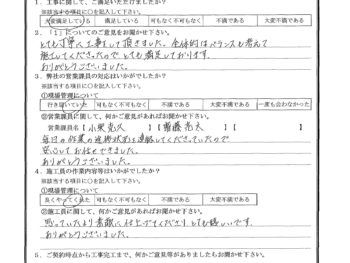 1．工事に関して、ご満足いただけましたか？
※該当する項目に○を記入して下さい。
大変満足している　満足している　可も無く不可も無く　不満である　大変不満である
2．「1」についてのご意見をお聞かせ下さい。
とても丁寧に工事をして頂きました。全体的なバランスも考えて
施工してくださったので とても満足しております。
ありがとうございました。
3．弊社の営業課員の対応はいかがでしたか？
※該当する項目に○を記入して下さい。
①現場管理について
行き届いていた　可も無く不可も無く　不満である　大変不満である　一度も会わなかった
②営業課員に関して、何かご意見があればお聞かせ下さい。
営業課員名【
毎日の作業の進捗状況を連絡してくださっていたので
安心してお任せできました。
ありがとうございました。
4．施工員の作業はいかがでしたか？
※該当する項目に○を記入して下さい。
①現場管理について
良くやってくれた　可も無く不可も無く　不満である　大変不満である
②施工員に関して、何かご意見があればお聞かせ下さい。
思っていたより素敵に仕上げてくださり とても嬉しいです。
ありがとうございました。
5．ご契約時点から工事完工まで、何かご意見等がありましたらお聞かせ下さい。